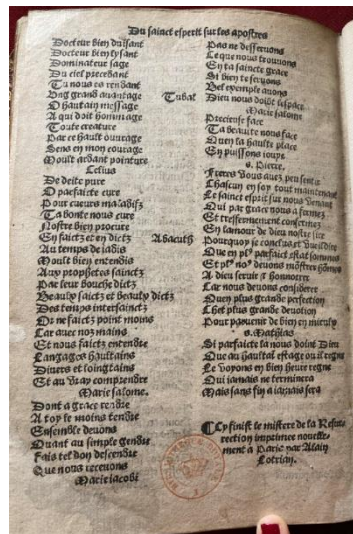 Du sainct esperit sur les apostres
Docteur bien duisant
Docteur bien lysant
Dominateur sage
Du ciel precedant
Tu nous es rendant
Ung grand avantage
O haultain message
A qui doit hommage
Toute creature
Par ce hault ouvrage
Sens en mon courage
Moult ardant pointure
Celius
De deite pure
O parfaicte cure
Pour cueurs maladifz
Ta bonte nous cure
Nostre bien procure
En faictz et en dictz
Au temps de iadis
Moult bien entendis
Aux prophetes sainctz
Par leur bouche dictz
Beaulx faictz et beaulx dictz
Des temps
Or ne faictz point moins
Car avec noz mains
Et nous faictz entendre
Langages haultains
Divers et loingtains
Et au vray comprendre
Marie salome.
Dont a grace rendre
A toy le moins tendre
Ensemble devons
Quant au simple gendre
Fais tel don descendre
Que nous recevons
Marie iacobi
Tubal
Abacuth
Pas ne desservons
Ce que nous trouvons
En ta saincte grace
Si bien te servons
Bel exemple avons
Dieu nous doint lespace
Marie salome
Precieuse face
Ta beaulte nous face
Quen ta haulte place
En puissons iouyr
s. Pierre.
Freres vous avez peu sentir
Chascun en soy tout maintenant
Le sainct esprit sur nous venant
Qui par grace nous a fermez
Et tressermement confermez
En lamour de dieu nostre sire
Pourquoy ie conclus et vueil dire
Que en plus parfaict estat sommes
Et plus nous devons monstrer hommes
A dieu servir et honnorer
Car nous devons considerer
Quen plus grande perfection
Chet plus grande devotion
Pour parvenir de bien en mieulx
s. Mathias
Si parfaicte la nous doint Dieu
Que au haultal estage ou il regne
Le voyons en bien heure regne
Qui iamais ne terminera
Mais sans fin a iamais sera
Cy finist le mistere de la Resur
rection imprimee nouvelle-
ment a Paris par Alain
Lotrian.